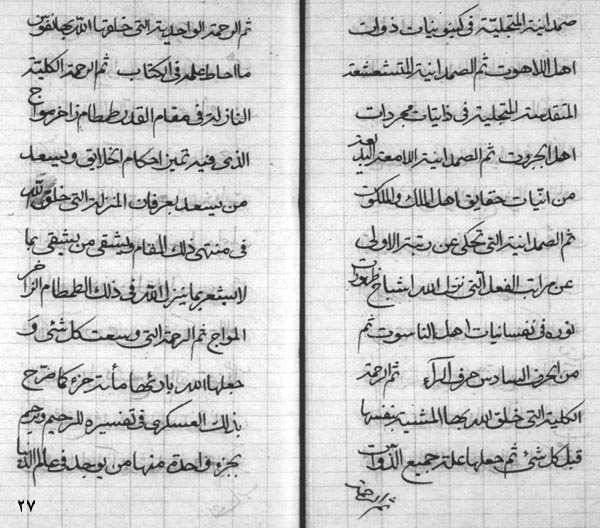 صمدانية المتجلية فی كينونيات ذوات
اهل اللاهوت ثم الصمدانية المتشعشعة
المتقدسة المتجلية فی ذاتيات مجردات
اهل الجبروت ثم الصمدانية اللامعة
من انيات حقايق اهل الملك والملكوت
ثم الصمدانية التی تحكی عن رتبة الاولی
عن مراتب الفعل التی نزل الله اشباح ظهورات
نوره فی نفسانيات اهل الناسوت ثم
من الحرف السادس حرف الرآء ثم الرحمة
الكلية التی خلق الله بها المشية بنفسها
قبل كل شئ ثم جعلها علة جميع الذوات
ثم الرحمة
ثم الرحمة الواحدية التی خلق بها الله
ما احاط علمه فی الكتاب ثم الرحمة الكلية
النازلة فی مقام القدر طمطام زاخر مواج
الذی فيه تميز احكام الخلايق ويسعد
من يسعد بعرفان المنزلة التی خلق الله
فی منتهی ذلك المقام ويشقی من يشقی بما
لا يشعر بما ينزل الله فی ذلك الطمطام الزاخر
المواج ثم الرحمة التی وسعت كل شئ و
جعلها الله بارئها مأة جزء كما صرح
بذلك العسكری فی تفسيره للرحيم ورحم
بجزء واحدة منها من يوجد فی عالم الدنيا
٢٧